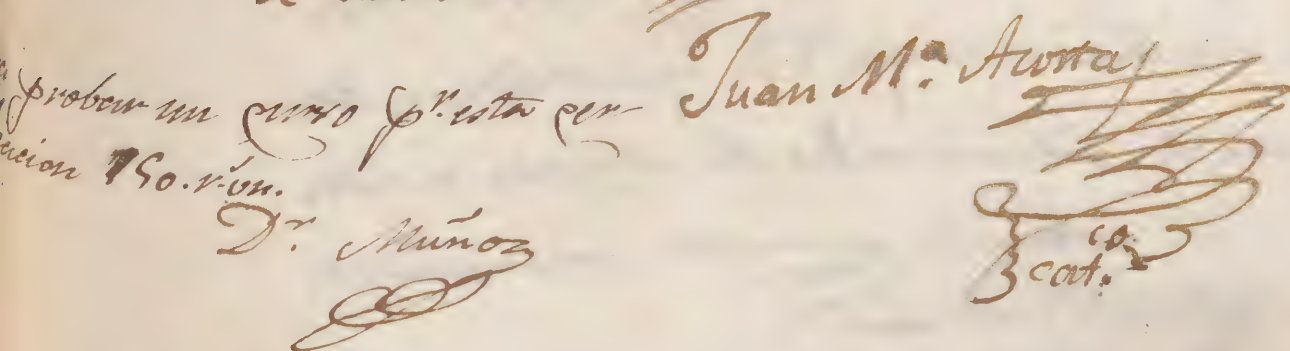 probar un curso pr. esta cer-
cacion 150. r.s vn.
Dr. Muñoz
Juan M.a Acosta
cat.co